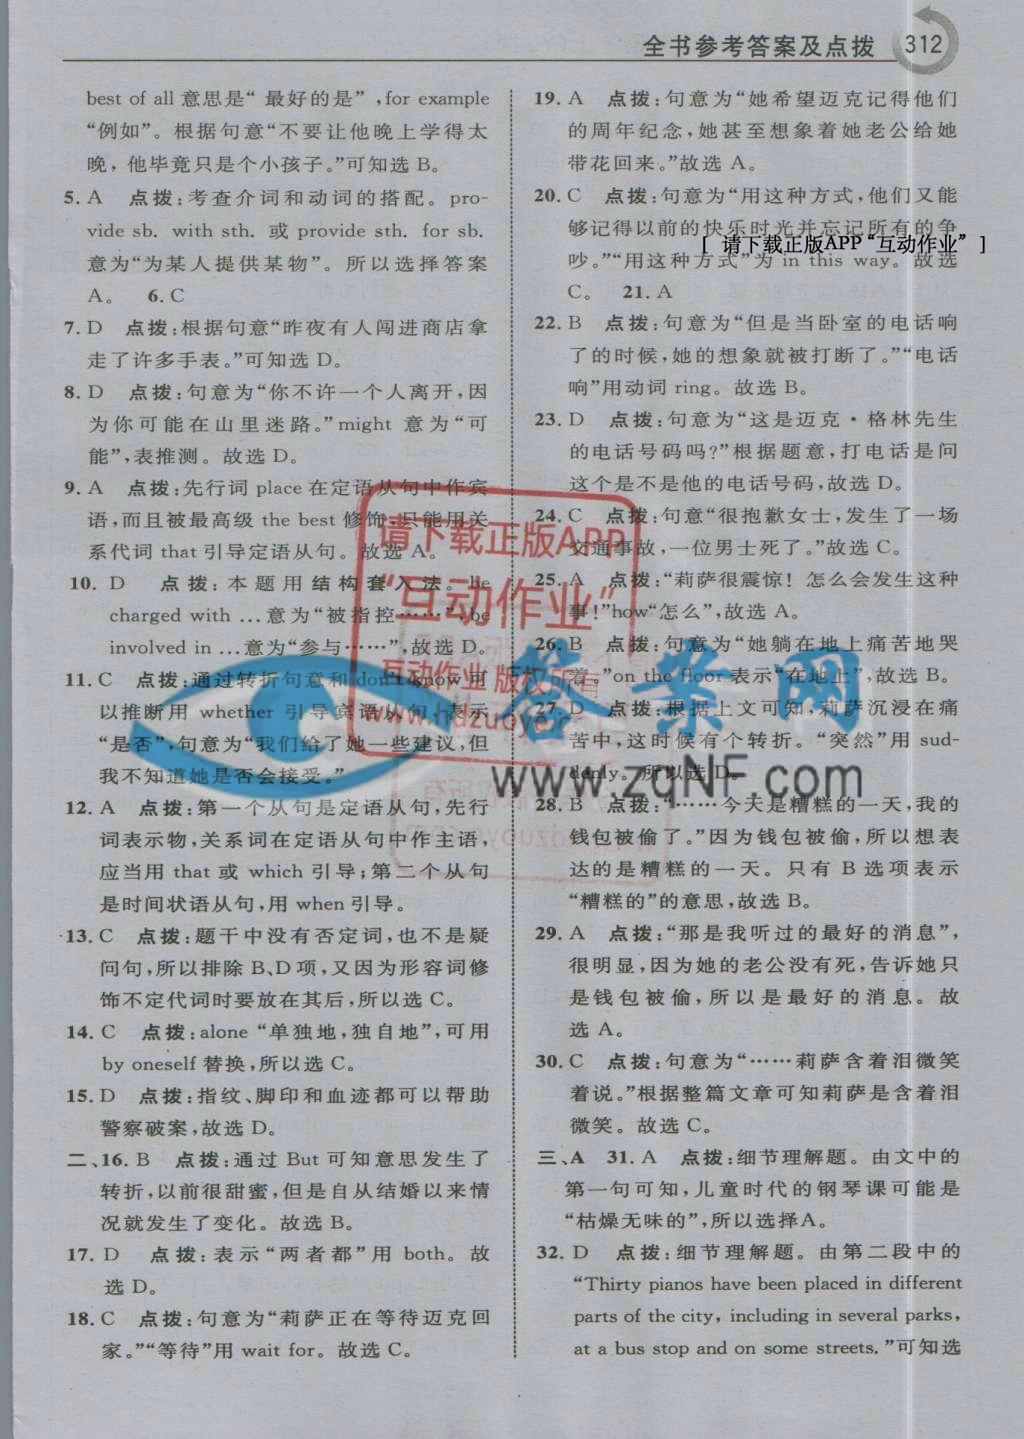 全书参考答案及点拨 312
best of all 意思是“ 最好的是”,for example
“例如”。根据句意“不要让他晚上学得太
晚,他毕竟只是个小孩子。”可知选 B。
5. A 点拨:考查介词和动词的搭配。pro-
vide sb. with sth. 或 provide sth. for sb.
意为“为某人提供某物”。所以选择答案
A。 6. C
7. D 点拨:根据句意“昨夜有人闯进商店拿
走了许多手表。”可知选 D。
8. D 点拨:句意为“你不许一个人离开,因
为你可能在山里迷路。”might 意为“可
能”,表推测。故选 D。
9. A 点拨:先行词 place 在定语从句中作宾
语,而且被最高级 the best 修饰,只能用关
系代词 that 引导定语从句。故选 A。
10. D 点拨:本题用结构套入法。be
charged with …意为“被指控……”,be
involved in …意为“参与……”,故选 D。
11. C 点拨:通过转折句意和 don't know 可
以推断用 whether 引导宾语从句,表示
“是否”,句意为“我们给了她一些建议,但
我不知道她是否会接受。”
12. A 点拨:第一个从句是定语从句,先行
词表示物,关系词在定语从句中作主语,
应当用 that 或 which 引导;第二个从句
是时间状语从句,用 when 引导。
13. C 点拨:题干中没有否定词,也不是疑
问句,所以排除 B、D 项,又因为形容词修
饰不定代词时要放在其后,所以选 C。
14. C 点拨:alone “单独地,独自地”,可用
by oneself 替换,所以选 C。
15. D 点拨:指纹、脚印和血迹都可以帮助
警察破案,故选 D。
二、16. B 点拨:通过 But 可知意思发生了
转折,以前很甜蜜,但是自从结婚以来情
况就发生了变化。故选 B。
17. D 点拨:表示“两者都”用 both。故
选 D。
18. C 点拨:句意为“莉萨正在等待迈克回
家。”“等待”用 wait for。故选 C。
19. A 点拨:句意为“她希望迈克记得他们
的周年纪念,她甚至想象着她老公给她
带花回来。”故选 A。
20. C 点拨:句意为“用这种方式,他们又能
够记得以前的快乐时光并忘记所有的争
[ 请下载正版APP“互动作业” ]
吵。”“用这种方式”为 in this way。故选
C。 21. A
22. B 点拨:句意为“但是当卧室的电话响
了的时候,她的想象就被打断了。”“电话
响”用动词 ring。故选 B。
23. D 点拨:句意为“这是迈克·格林先生
的电话号码吗?”根据题意,打电话是问
这个是不是他的电话号码,故选 D。
24. C 点拨:句意“很抱歉女士,发生了一场
交通事故,一位男士死了。”故选 C。
25. A 点拨:“莉萨很震惊！怎么会发生这种
事!”how“怎么”,故选 A。
26. B 点拨:句意为“她躺在地上痛苦地哭
着。”on the floor 表示“在地上”,故选 B。
27. D 点拨:根据上文可知,莉萨沉浸在痛
苦中,这时候有个转折。“突然”用 sud-
denly。所以选 D。
28. B 点拨:“……今天是糟糕的一天,我的
钱包被偷了。”因为钱包被偷,所以想表
达的是糟糕的一天。只有 B 选项表示
“糟糕的”的意思,故选 B。
29. A 点拨:“那是我听过的最好的消息”,
很明显,因为她的老公没有死,告诉她只
是钱包被偷,所以是最好的消息。故
选 A。
30. C 点拨:句意为“……莉萨含着泪微笑
着说。”根据整篇文章可知莉萨是含着泪
微笑。故选 C。
三、A 31. A 点拨:细节理解题。由文中的
第一句可知,儿童时代的钢琴课可能是
“枯燥无味的”,所以选择A。
32. D 点拨:细节理解题。由第二段中的
“Thirty pianos have been placed in different
parts of the city, including in several parks,
at a bus stop and on some streets.”可知选
请下载正版APP
“互动作业”
互动作业 版权所有
www.hdzuoye.
答案网
www.zqNF.com